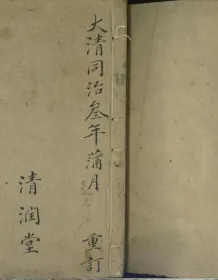 大清同治叁年蒲月　重訂
清润堂